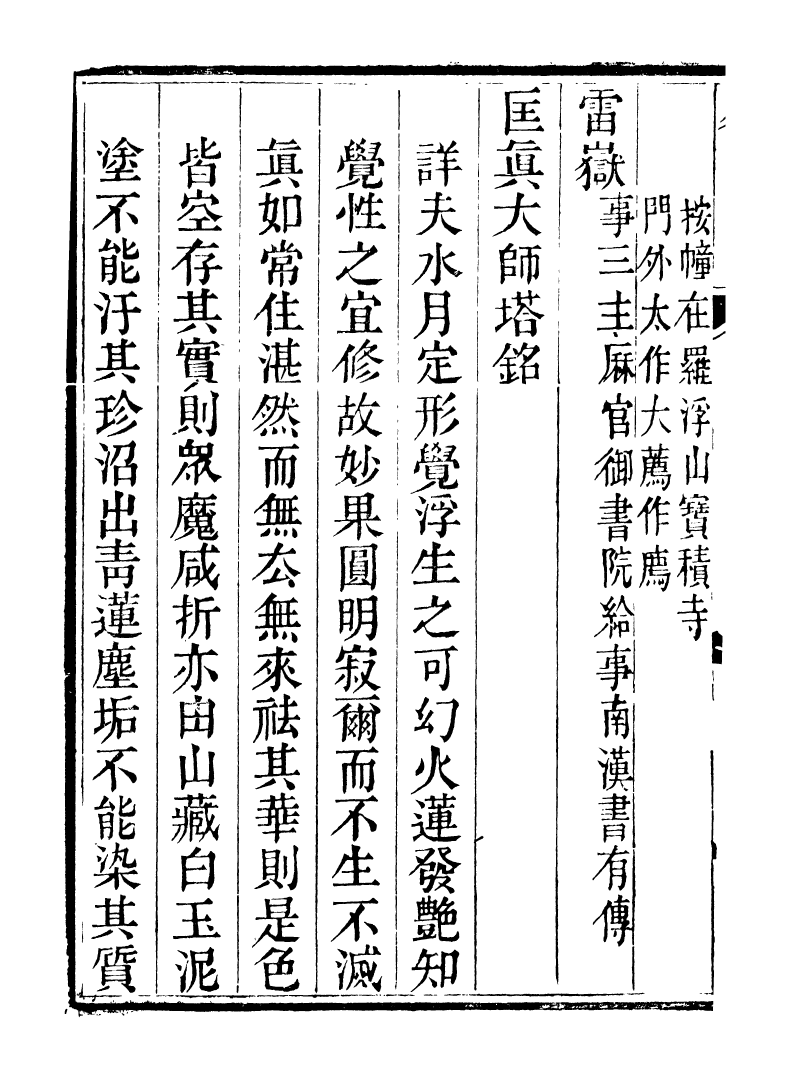 按幢在羅浮山寶積寺
門外太作大薦作廌
雷嶽事三主厤官御書院給事南漢書有傳
匡眞大師塔銘
詳夫水月定形覺浮生之可幻火蓮發艶知
覺性之宜修故妙果圓明寂爾而不生不滅
眞如常住湛然而無厺無來祛其華則是色
皆空存其實則眾魔咸折亦由山藏白玉泥
塗不能汙其珍沼出靑蓮塵垢不能染其質